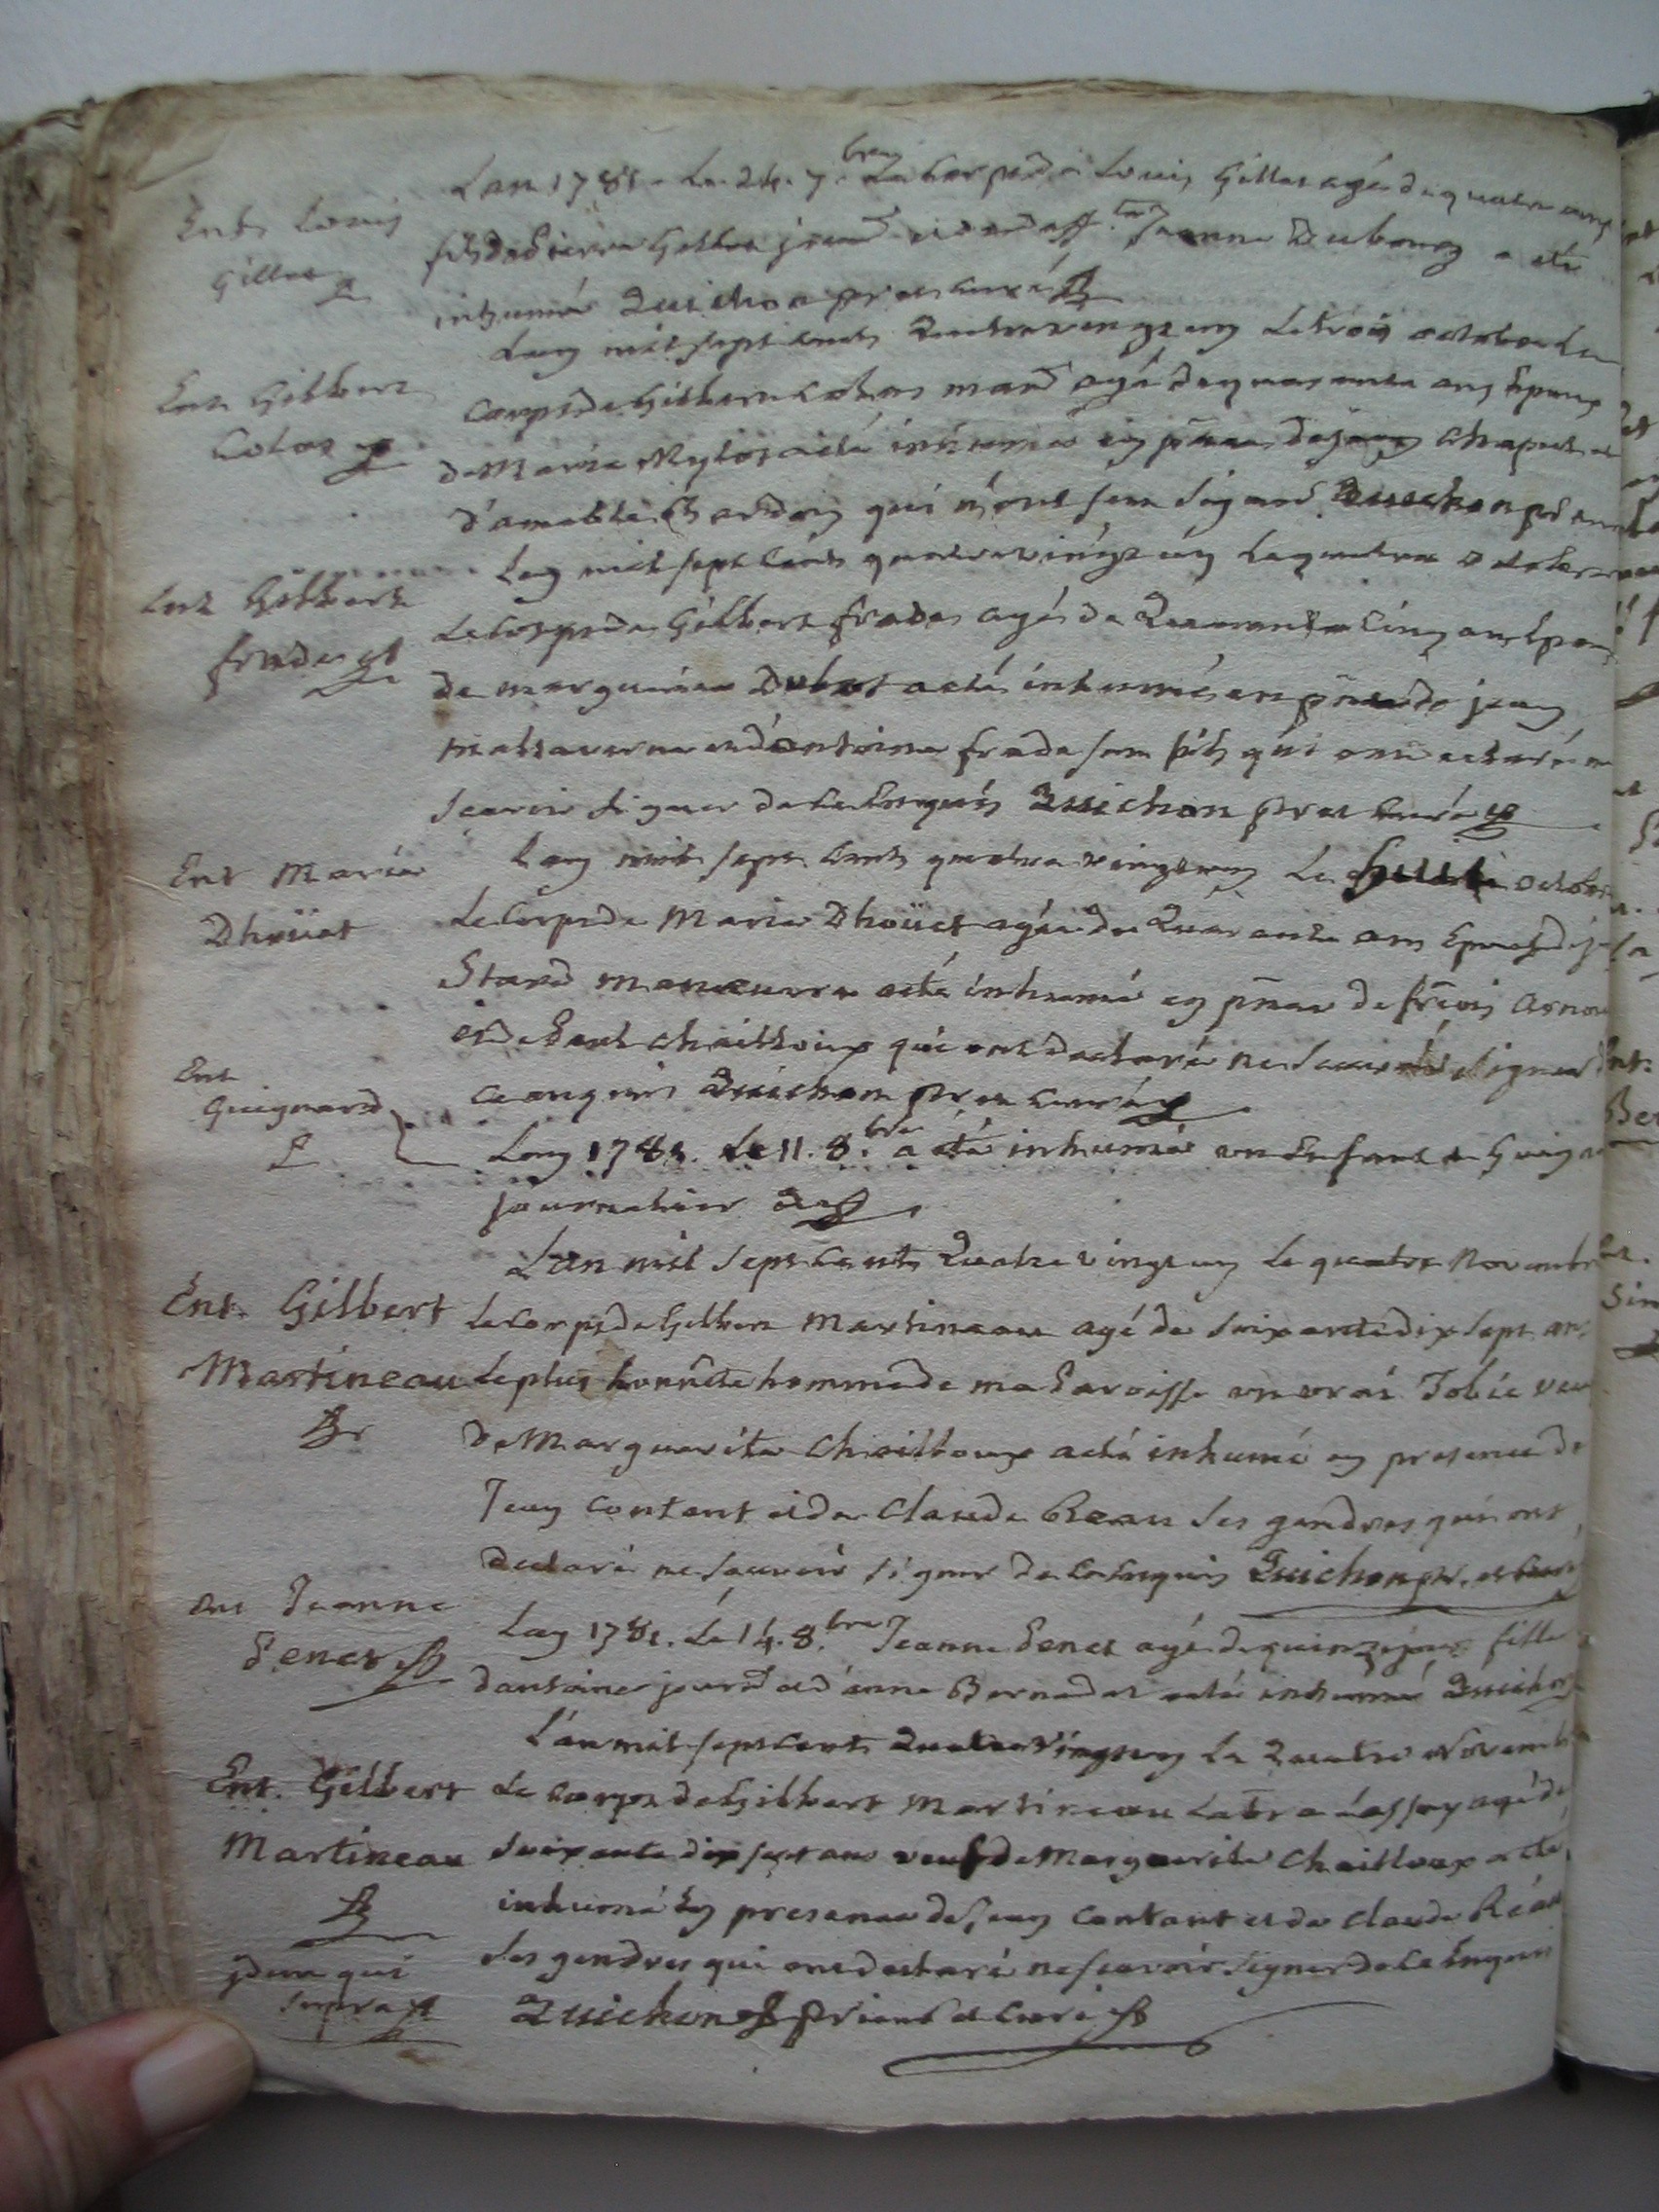 Ent. Louis
Gilles
Lan 1781. Le 24. 7.bre Le Corps de Louis Gilles agé de quatre ans
fils de Pierre Gilles jour.d et de deff.te Jeanne Dubourg a eté
inhumé Quichon pr et curé
Ent. Gilbert
Colas
Lan mil sept cents Quatrevingt un Le trois octobre Le
Corps de Gilbert Colas agé de quarante ans Epoux
de Marie a eté inhumé en pnce de jean Chapelat et
d'amable Chardon qui n'ont seu signer Quichon pr
Ent. Gilbert
frade
Lan mil sept Cents quatrevingt un Le quatre octobre
Le Corps de Gilbert frade agé de Quarante Cinq ans Epoux
de marguerite Dubost a eté inhumé en pnce de jean
mallaverne et d'antoine frade son fils qui ont declaré ne
scavoir signer de ce Enquis Quichon pr et curé
Ent Marie
Dhoüet
Lan mil sept Cents quatrevingt un Le huit octobre
Le Corps de Marie Dhoüet agée de Quarante ans Epouse de j
Stard manœuvre a eté inhumé en pnce de frcois
et de Paul chailloux qui ont declaré ne scavoir signer
ce enquis Quichon pr et curé
Ent
Guignard
Lan 1781. Le 11. 8.bre a eté inhumé un Enfant a Guign
journalier
Ent. Gilbert
Martineau
Lan mil sept Cents Quatrevingt un Le quatre Novembre
Le Corps de Gilbert Martineau agé de soixante dix sept ans
le plus honnête homme de ma Paroisse un vrai Tobie veuf
de Marguerite Chailloux a eté inhumé en presence de
Jean Contant et de Claude Reau ses gendres qui ont
declaré ne scavoir signer de ce Enquis Quichon pr. et curé
Ent Jeanne
Penet
Lan 1781. Le 14. 8.bre Jeanne Penet agé de quinze jours fille
d'antoine jour.d et d'anne Bernadat a eté inhumé Quichon
Ent. Gilbert
Martineau
idem qui
supra
L'an mil sept Cents Quatre Vingt un Le Quatre Novembre
Le Corps de Gilbert Martineau agé de
soixante dix sept ans veuf de Marguerite Chailloux a eté
inhumé En presence de Jean Contant et de Claude Réau
ses gendres qui ont declaré ne scavoir signer de ce Enquis
Quichon Prieur et Curé